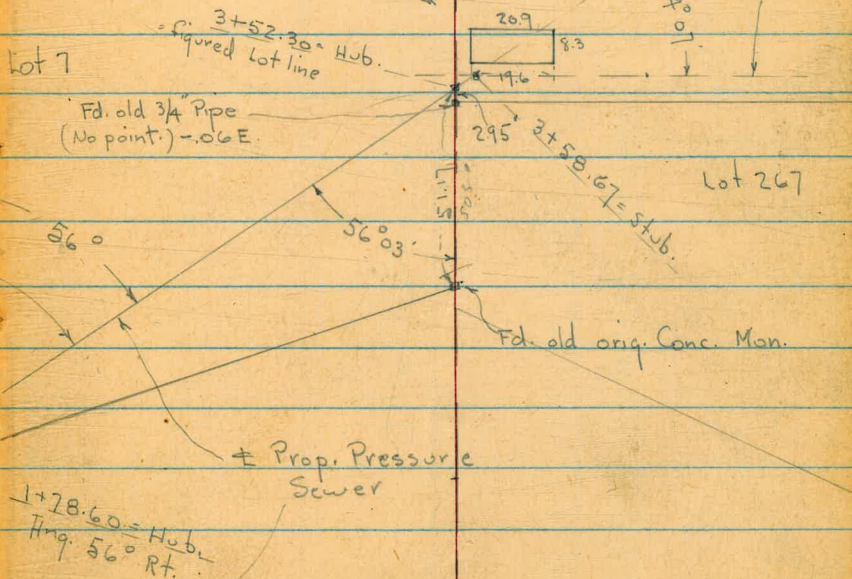 3+52.30 = Hub.
= figured Lot line
20.9
8.3
19.6
Lot 7
Fd. old 3/4" Pipe
(No point.) -.06E
295°
3+58.67 = Stub.
Lot 267
51.17
56°
56° 03'
Fd. old orig. Conc. Mon.
℄ Prop. Pressure
Sewer
1+28.60 = Hub.
Ang. 56° Rt.